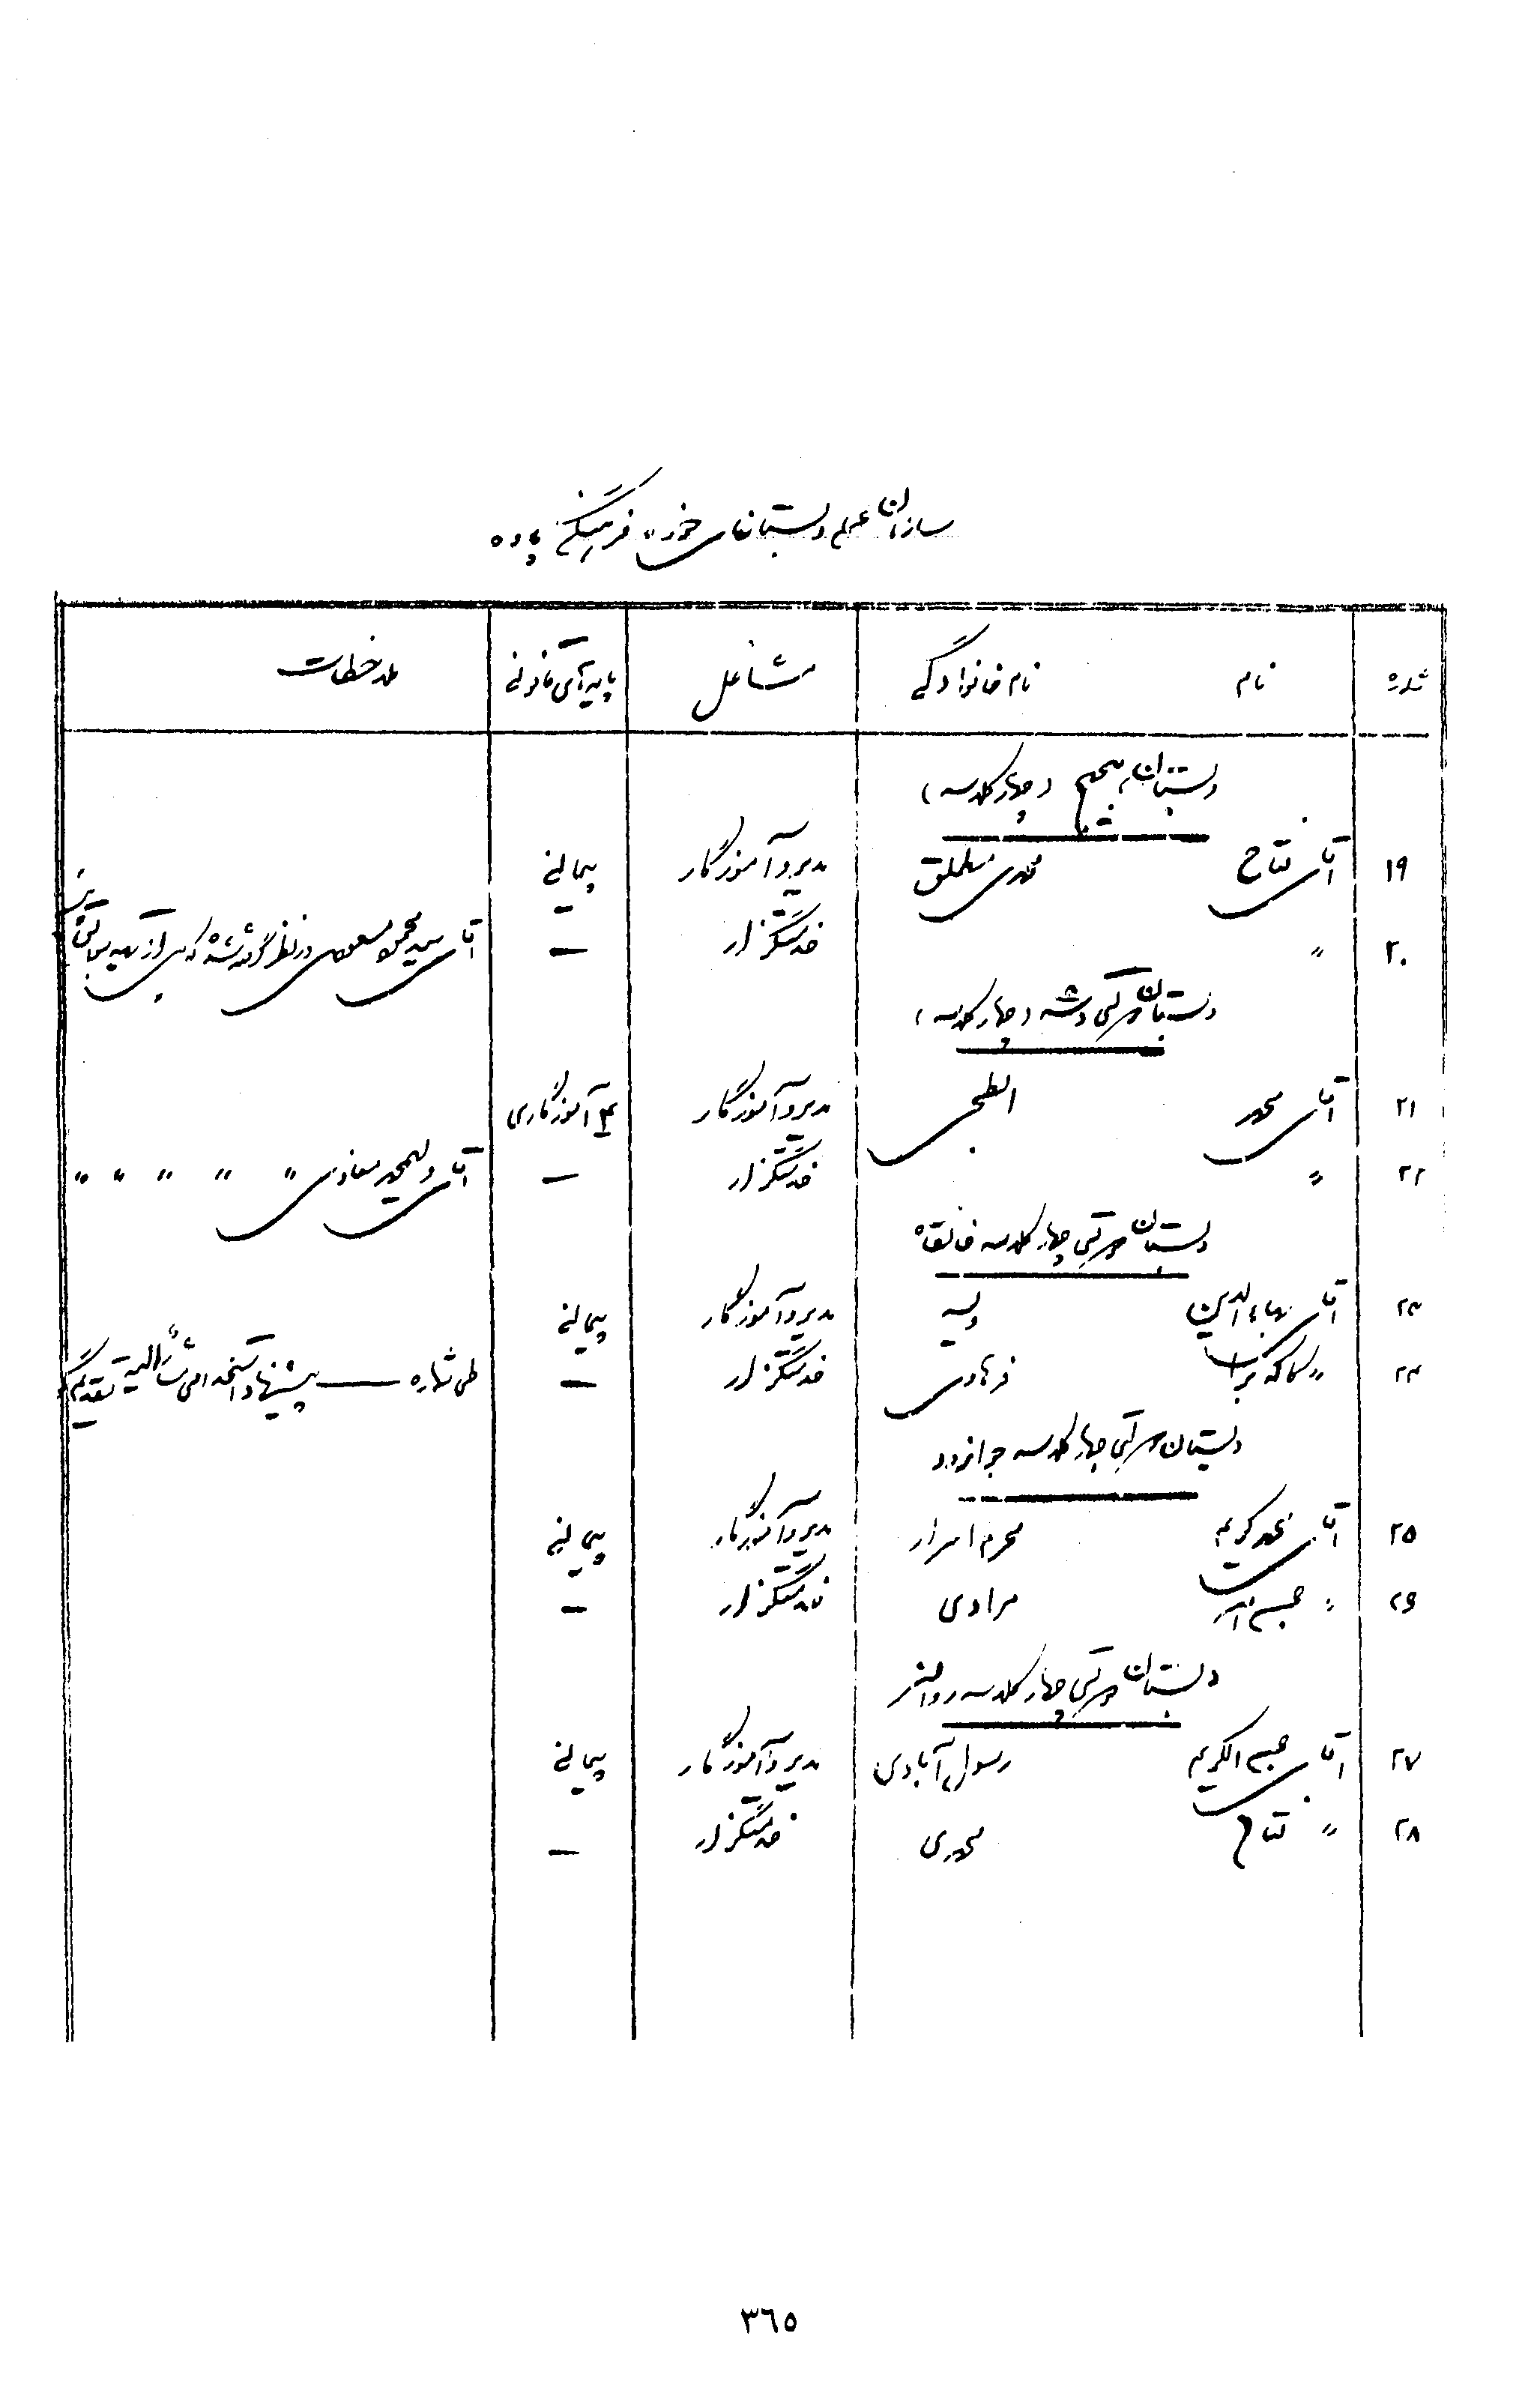 سازمان عملی دبستانهای حوزه فرهنگی پاوه
شماره نام نام خانوادگی مشاغل پایه آموزگاری قانونی ملاحظات
دبستان (چهار کلاسه)
۱۹ آقای فتاح محمدی مدیر و آموزگار پیمانی
۲۰ " خدمتگزار — آقای سید محمود مسعودی در نظر گرفته شده که پس از تهیه
دبستان مرکبی دشه (چهار کلاسه)
۲۱ آقای محمد ابطحی مدیر و آموزگار ۳ آموزگاری
۲۲ " خدمتگزار — آقای ولیمحمد معاذی " " " " "
دبستان مرکبی چهار کلاسه خانقاه
۲۳ آقای بهاءالدین ولیه مدیر و آموزگار پیمانی
۲۴ " فرهادی خدمتگزار — طی شماره — پیشنهاد استخدامی مشارالیه تقدیم
دبستان مرکبی چهار کلاسه جوانرود
۲۵ آقای محمد کریم محرم اسرار مدیر و آموزگار پیمانی
۲۶ " مرادی خدمتگزار —
دبستان مرکبی چهار کلاسه روانسر
۲۷ آقای عبدالکریم رسول آبادی مدیر و آموزگار پیمانی
۲۸ " فتاح محمدی خدمتگزار —
٣٦٥